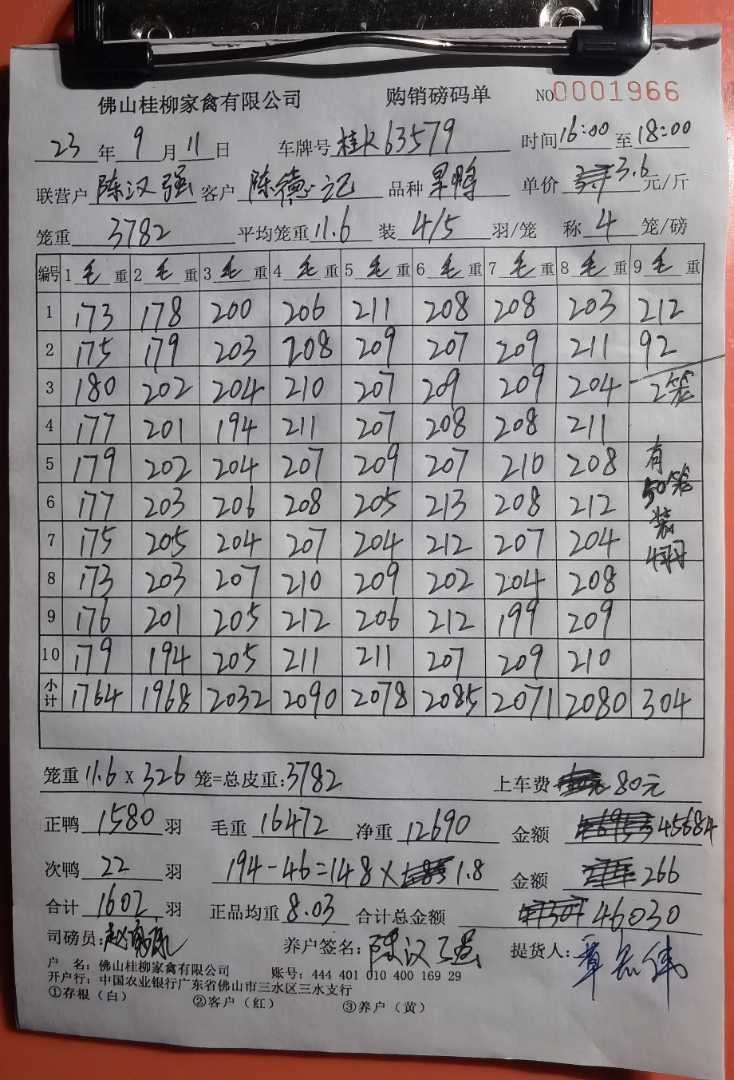 佛山桂柳家禽有限公司 购销磅码单 NO0001966
23年9月11日 车牌号桂K63579 时间16:00至18:00
联营户陈汉强 客户陈德记 品种旱鸭 单价3.6元/斤
笼重3782 平均笼重11.6 装4/5羽/笼 称4笼/磅
编号 1毛重 2毛重 3毛重 4毛重 5毛重 6毛重 7毛重 8毛重 9毛重
1 173 178 200 206 211 208 208 203 212
2 175 179 203 208 209 207 209 211 92
3 180 202 204 210 207 209 209 204 2笼
4 177 201 194 211 207 208 208 211
5 179 202 204 207 209 207 210 208 有
6 177 203 206 208 205 213 208 212 50笼
7 175 205 204 207 204 212 207 204 装
8 173 203 207 210 209 202 204 208 4羽
9 176 201 205 212 206 212 199 209
10 179 194 205 211 211 207 209 210
小计 1764 1968 2032 2090 2078 2085 2071 2080 304
笼重11.6×326笼=总皮重:3782 上车费80元
正鸭1580羽 毛重16472 净重12690 金额45684
次鸭22羽 194-46=148×1.8 金额266
合计1602羽 正品均重8.03 合计总金额46030
司磅员: 养户签名:陈汉强 提货人:
户 名:佛山桂柳家禽有限公司 账号:444 401 010 400 169 29
开户行:中国农业银行广东省佛山市三水区三水支行
①存根(白) ②客户(红) ③养户(黄)